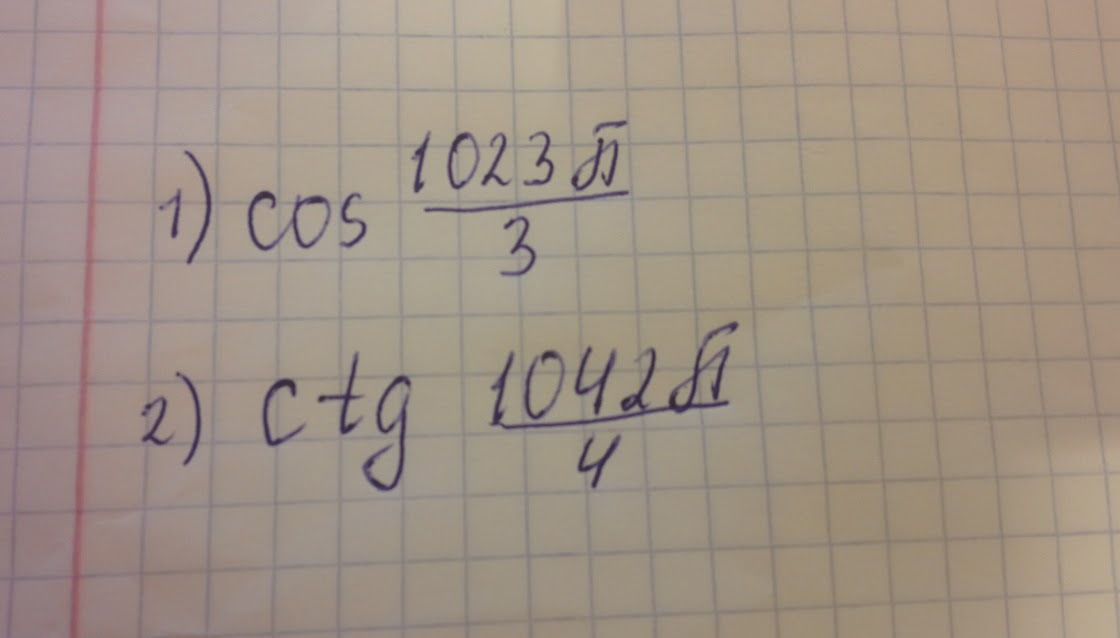 1) cos 1023π/3
2) ctg 1042π/4